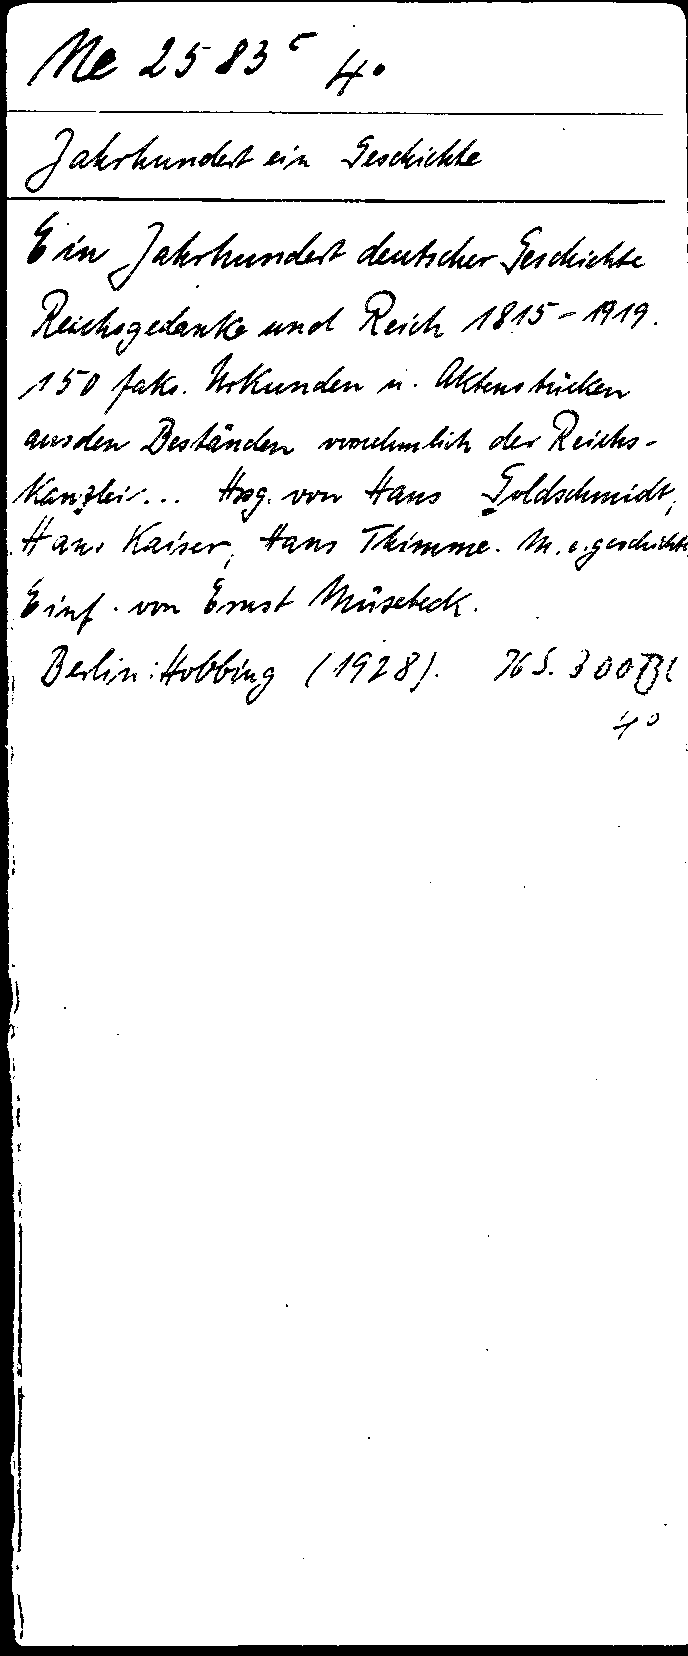 Ne 2583ᶜ 4°
Jahrhundert ein Geschichte
Ein Jahrhundert deutscher Geschichte
Reichsgedanke und Reich 1815-1919.
150 faks. Urkunden u. Aktenstücken
aus den Beständen vornehmlich der Reichs-
kanzlei... Hrsg. von Hans Goldschmidt,
Hans Kaiser, Hans Thimme. M. e. geschichtl
Einf. von Ernst Müsebeck.
Berlin: Hobbing (1928). 76 S. 300 Bl
4°